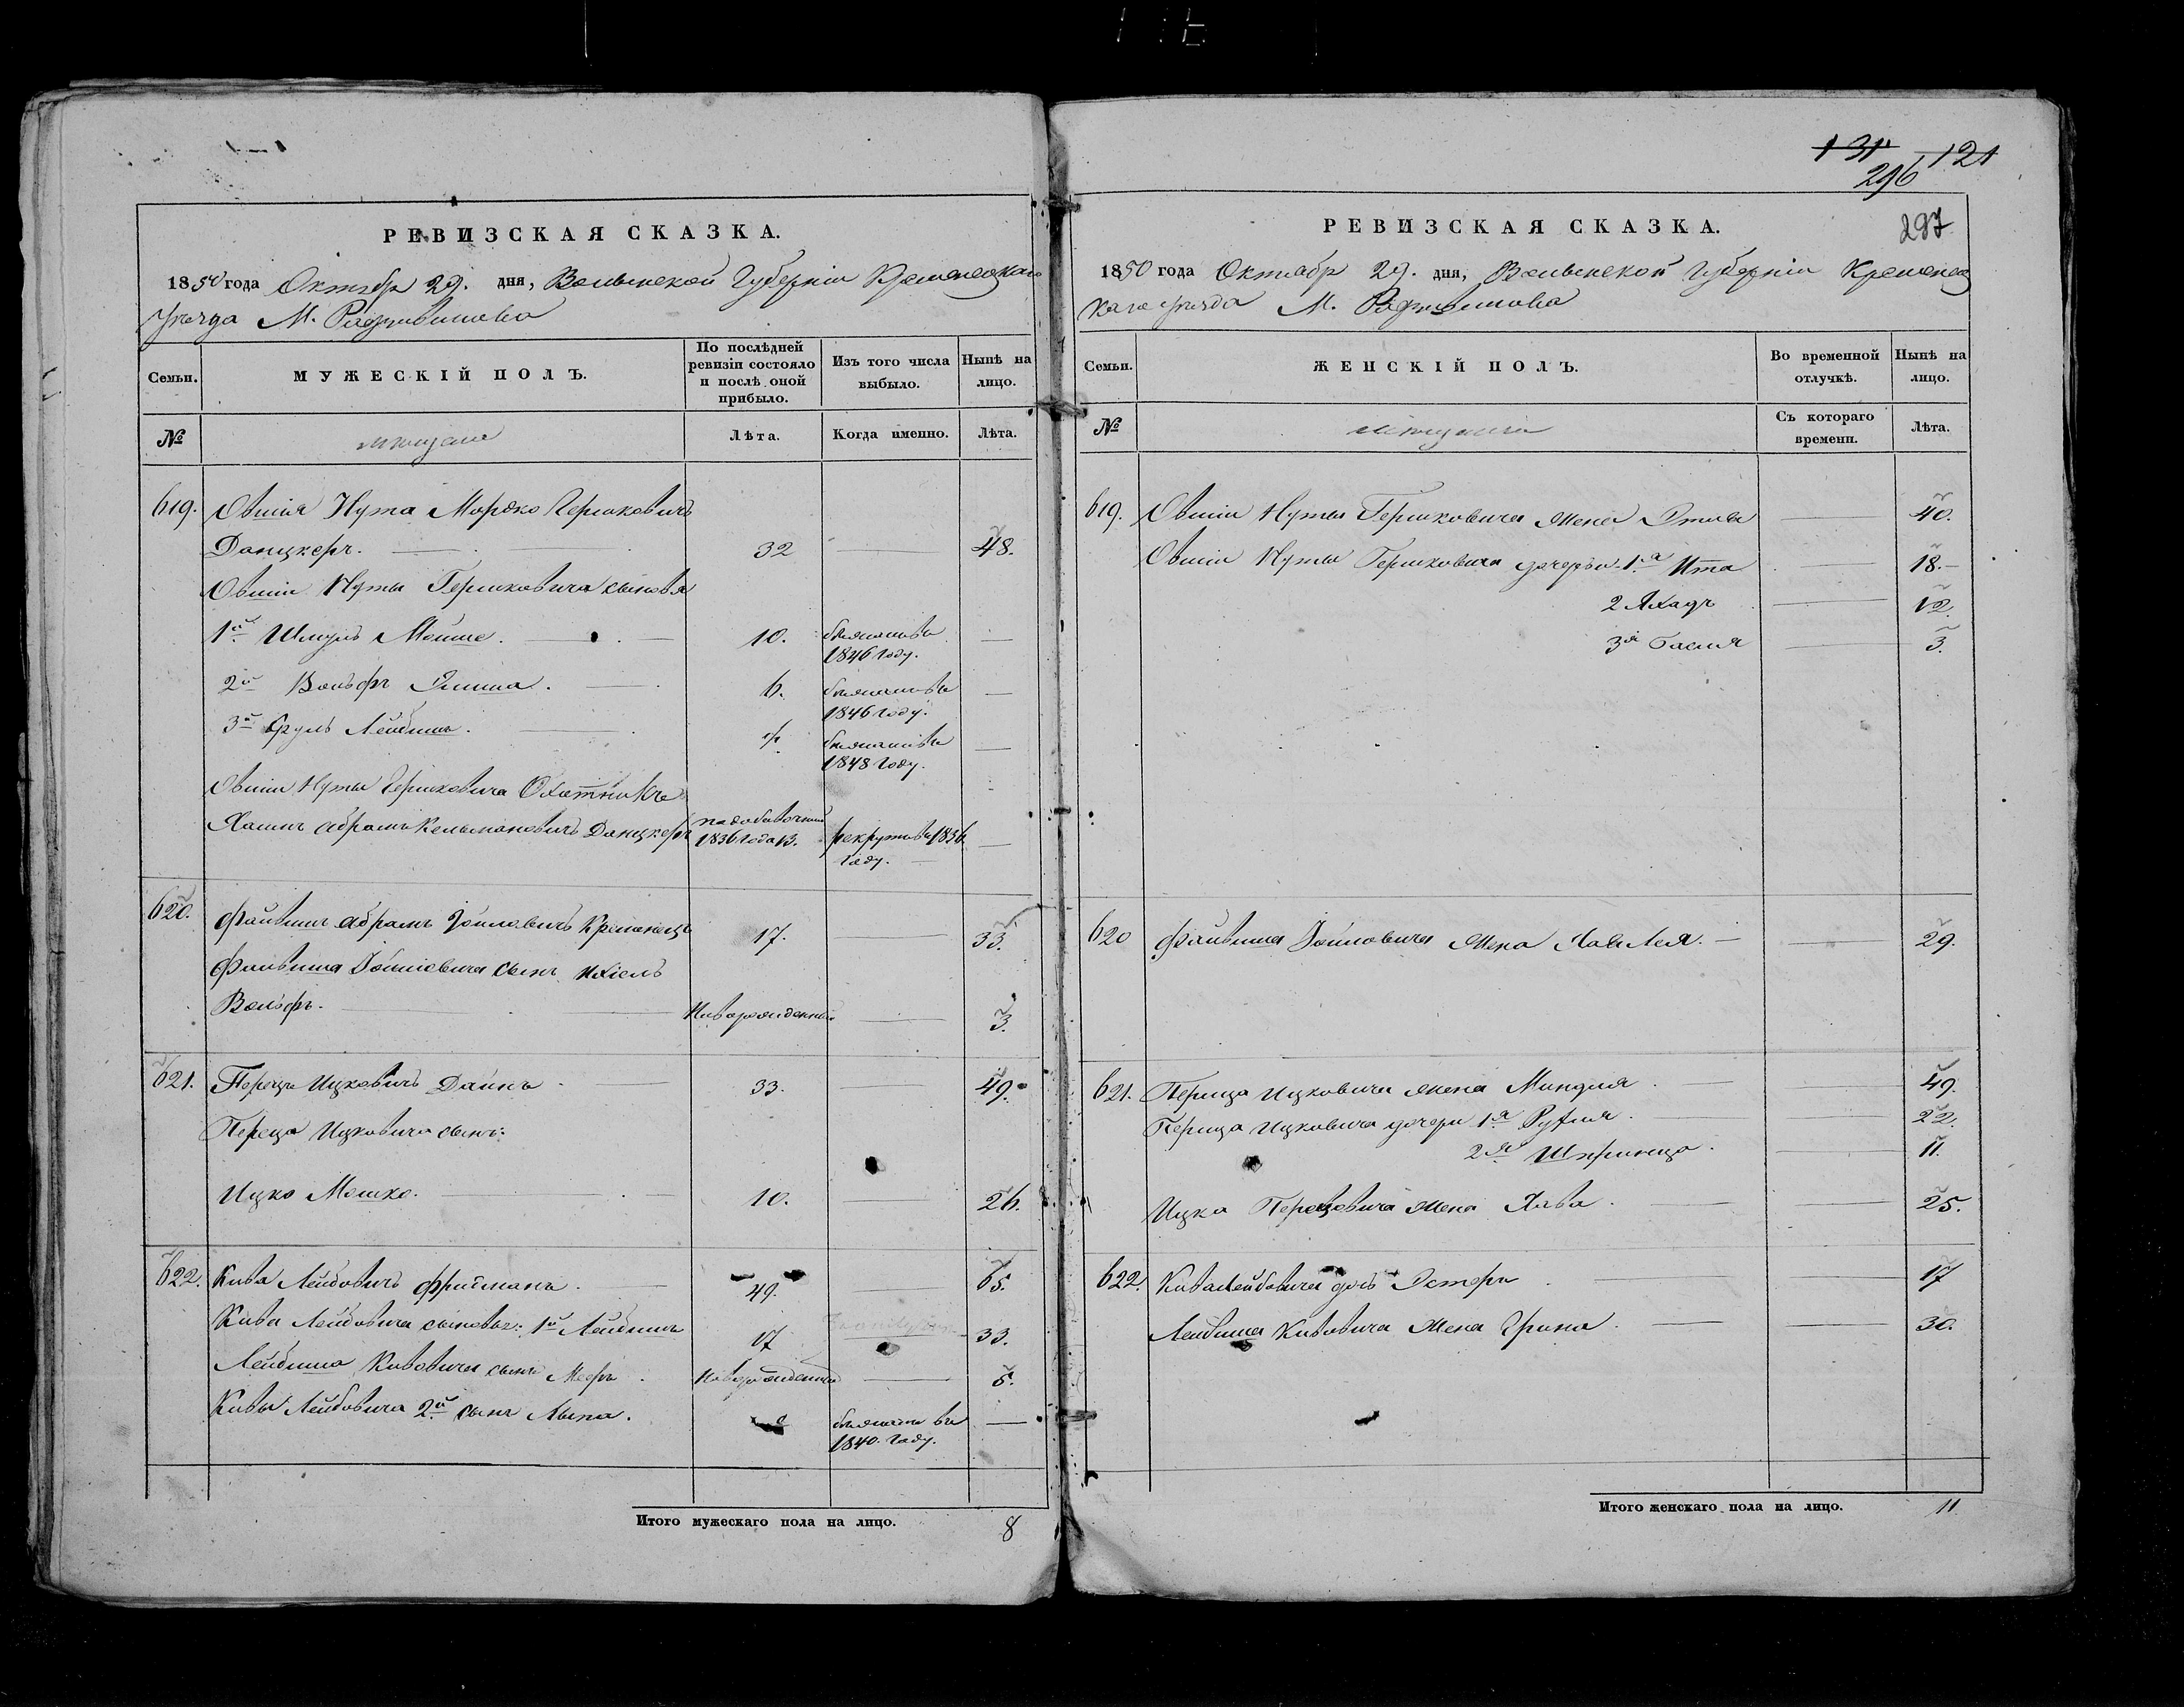 131 121
296
297
РЕВИЗСКАЯ СКАЗКА.
1850 года Октября 29. дня, Волынской Губерніи Кременецкаго
Уѣзда М. Радзивилова
Семьи.
МУЖЕСКІЙ ПОЛЪ.
По послѣдней ревизіи состояло и послѣ оной прибыло.
Изъ того числа выбыло.
Нынѣ на лицо.
№
мѣщане
Лѣта.
Когда именно.
Лѣта.
619. Овшія Нута Мордко Гершковичъ
Данцкеръ. 32 48.
Овшіи Нуты Гершковича сыновья
1й Шмуль Мойше. 10. 1846 году.
2й Вольфъ 6. 1846 году.
3й Сруль Лейбишъ. 1848 году.
Овшіи Нуты Гершковича Охотникъ
Хаимъ Абрамъ Кельмановичъ Данцкеръ 1836 года 13. рекрутъ въ 1836
году.
620. Файвишъ Абрамъ Іойловичъ Кременецъ 17. 33.
Файвиша Іойловича сынъ Ихіель
Вольфъ. Новорожденный 3.
621. Перецъ Ицковичъ Дайнъ 33. 49.
Переца Ицковича сынъ:
Ицко Мошко. 10. 26.
622. Кива Лейбовичъ Фридманъ. 49. 65.
Кивы Лейбовича сыновья: 1й Лейбишъ 17 33.
Лейбиша Кивовича сынъ Мееръ. Новорожденный 5.
Кивы Лейбовича 2й сынъ
1840. году.
Итого мужескаго пола на лицо. 8
РЕВИЗСКАЯ СКАЗКА.
1850 года Октября 29. дня, Волынской Губерніи Кременец
каго Уѣзда М. Радзивилова
Семьи.
ЖЕНСКІЙ ПОЛЪ.
Во временной отлучкѣ.
Нынѣ на лицо.
№
Съ котораго времени.
Лѣта.
619. Овшіи Нуты Гершковича жена 40.
Овшіи Нуты Гершковича дочери 1я Ита 18.
2 12.
3я Басия 3.
620 Файвиша Іойловича жена Хая Лея. 29.
621. Переца Ицковича жена Миндля 49.
Переца Ицковича дочери 1я Рухля. 22.
2я Шпринца. 11.
Ицка Перецовича жена Хава. 25.
622. Кива Лейбовича дочь Эстеръ 17
Лейбиша Кивовича жена 30.
Итого женскаго пола на лицо. 11